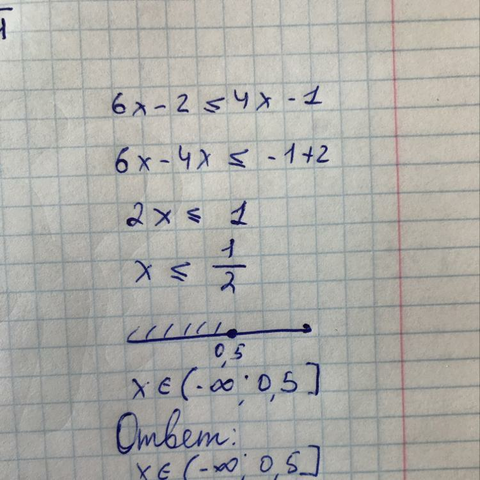 6x - 2 ≤ 4x - 1
6x - 4x ≤ -1+2
2x ≤ 1
x ≤ 1/2
0,5
x ∈ (-∞; 0,5]
Ответ:
x ∈ (-∞; 0,5]